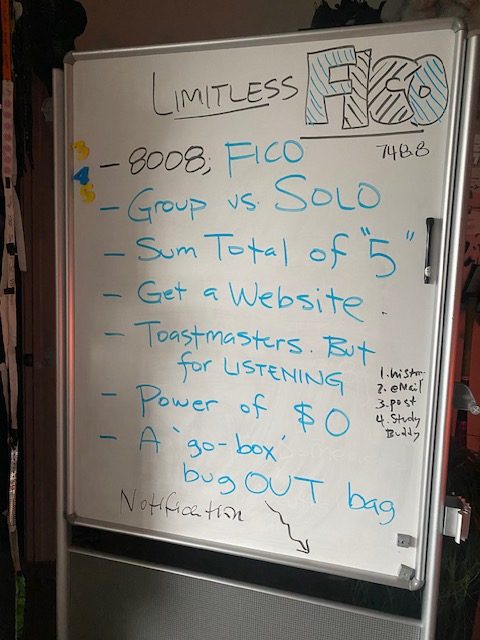 LIMITLESS FICO
74B.B
- 8008; FICO
- Group vs. SOLO
- Sum Total of "5"
- Get a Website.
- Toastmasters. But
for LISTENING
- Power of $0
- A 'go-box'
bug OUT bag
1.
2. eMail
3. post
4. Study
Buddy
Notification